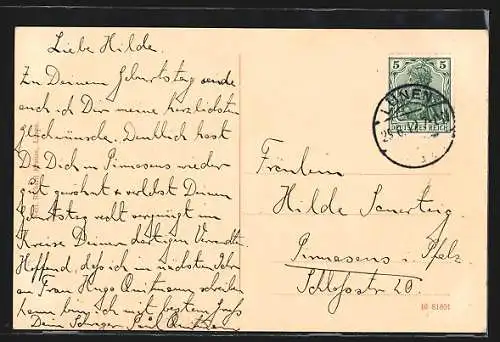 Liebe Hilde.
Zu Deinem Geburtstag sende
auch ich Dir meine herzlichsten
Glückwünsche. Deutlich hast
Du Dich in Pirmasens wieder
gut gewöhnt & verlebst Deinen
Geburtstag recht vergnügt im
Kreise Deiner dortigen Verwandten.
Hoffend, dass ich im nächsten Jahr
an Frau Hugo schreiben
kann bin ich mit bestem Gruß
Dein Schwager Paul
5 5
DEUTSCHES REICH
LÜNEN
Fräulein
Hilde Sauerteig
Pirmasens i. Pfalz
Schlossstr 20.
10 81801